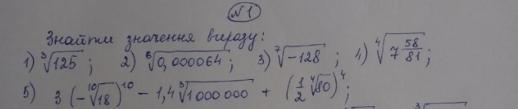 №1
Знайти значення виразу:
1) ∛125 ; 2) ⁶√0,000064 ; 3) ⁷√-128 ; 4) ⁴√7 58/81 ;
5) 3(-¹⁰√18)¹⁰ - 1,4∛1000000 + (1/2 ⁴√80)⁴ ;